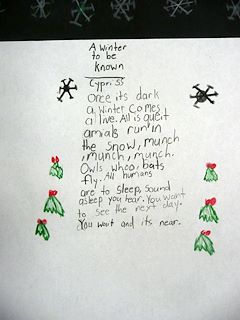 A Winter
to be
Known
Once its dark
a winter comes
alive. All is queit
amials run in
the snow, munch
,munch, munch.
Owls whoo, bats
fly. All humans
are to sleep, sound
asleep you hear. You want
to see the next day.
You wait and its near.